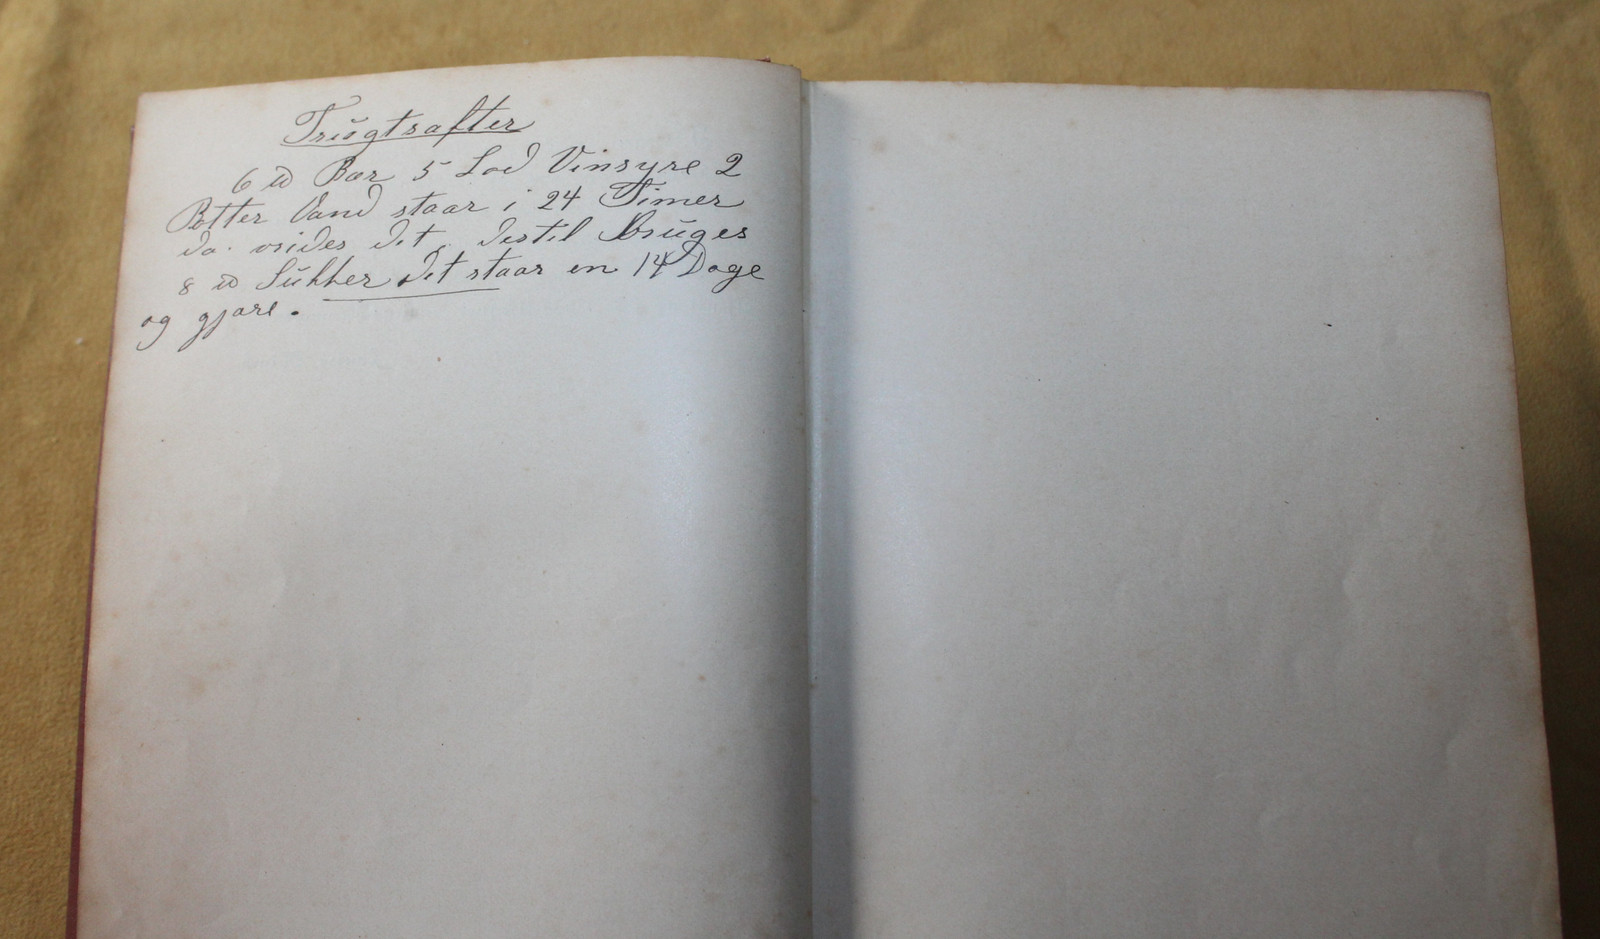 Frugtsafter
6 ℔ Bær 5 Lod Vinsyre 2
Potter Vand staar i 24 Timer
da vrides det, dertil Bruges
8 ℔ Sukker det staar en 14 Dage
og gjære.